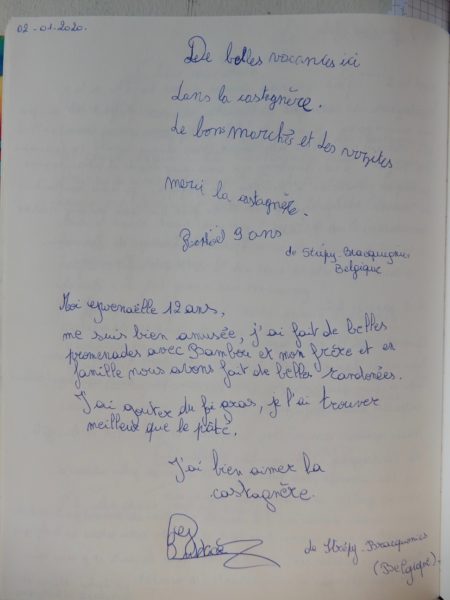 02-01-2020.
De belles vacances ici
dans la castagnère.
De bons marchés et des vizites
merci la castagnère.
9 ans
de Strépy-Bracquegnies
Belgique
Moi gwenaëlle 12 ans,
me suis bien amusée, j'ai fait de belles
promenades avec Bambou et mon frère et en
famille nous avons fait de belles randonées.
J'ai gouter du foi gras, je l'ai trouver
meilleur que le pâté.
J'ai bien aimer la
castagnère.
de Strépy-Bracquenies
(Belgique).